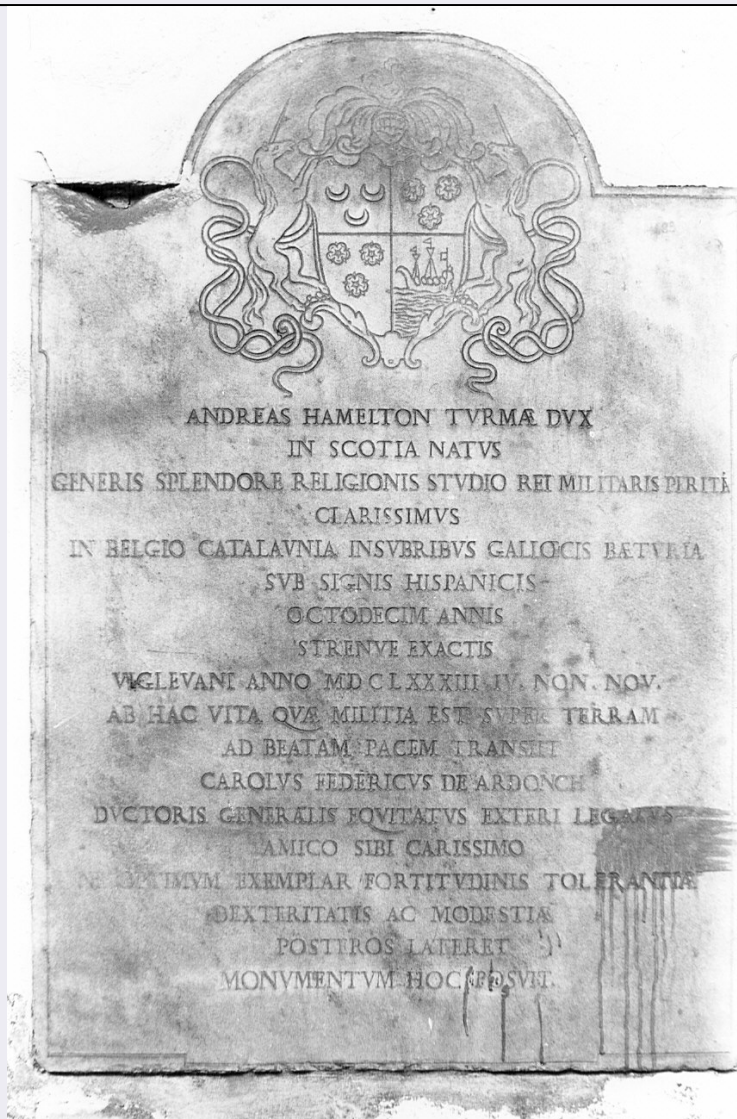 ANDREAS HAMELTON TVRMÆ DVX
IN SCOTIA NATVS
GENERIS SPLENDORE RELIGIONIS STVDIO REI MILITARIS PERITĀ
CLARISSIMVS
IN BELGIO CATALAVNIA INSVBRIBVS GALLŒCIS BÆTVRIA
SVB SIGNIS HISPANICIS
OCTODECIM ANNIS
STRENVE EXACTIS
VIGLEVANI ANNO MDCLXXXIII IV. NON. NOV.
AB HAC VITA QVÆ MILITIA EST SVPER TERRAM
AD BEATAM PACEM TRANSIIT
CAROLVS FEDERICVS DE ARDONCH
DVCTORIS GENERALIS EQVITATVS EXTERI LEGATVS
AMICO SIBI CARISSIMO
NE OPTIMVM EXEMPLAR FORTITVDINIS TOLERANTIÆ
DEXTERITATIS AC MODESTIÆ
POSTEROS LATERET
MONVMENTVM HOC POSVIT.